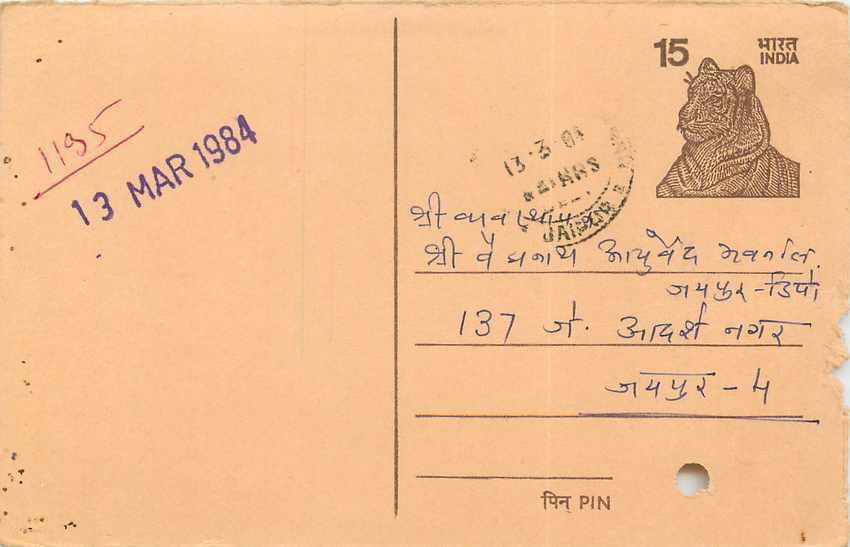 15
भारत
INDIA
1195
13 MAR 1984
13·3·84
JAIPUR
श्री व्यवस्थापक
श्री वैद्यनाथ आयुर्वेद भवन लि.
जयपुर-डिपो
137 जे. आदर्श नगर
जयपुर - 4
पिन् PIN